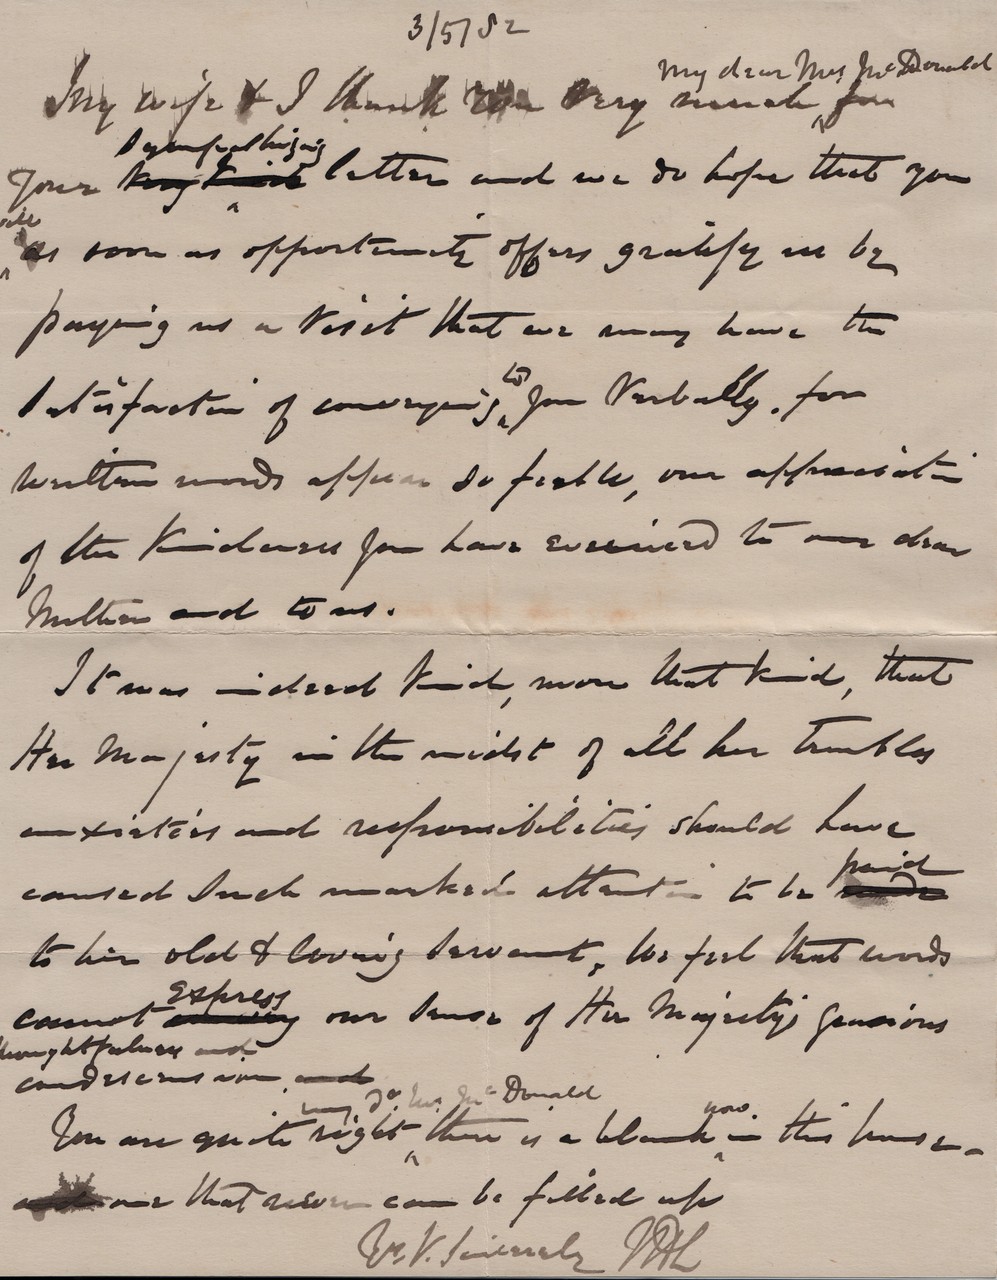 3/5/82
my dear Mrs McDonald
My wife & I thank you very much for
sympathizing
your very kind letter and we do hope that you
will
as soon as opportunity offers gratify us by
paying us a visit that we may have the
satisfaction of conveying to you verbally, for
written words appear so feeble, our appreciation
of the kindness you have evinced to our dear
Mother and to us.
It was indeed kind, more that kind, that
Her Majesty in the midst of all her troubles
anxieties and responsibilities should have
caused such marked attention to be made
paid
to her old & loving servant, We feel that words
express
cannot convey our sense of Her Majesty's gracious
thoughtfulness and
condescension, and
my dr Mrs McDonald
You are quite right there is a blank now in this house -
and one that never can be filled up
Yrs V. Sincerely